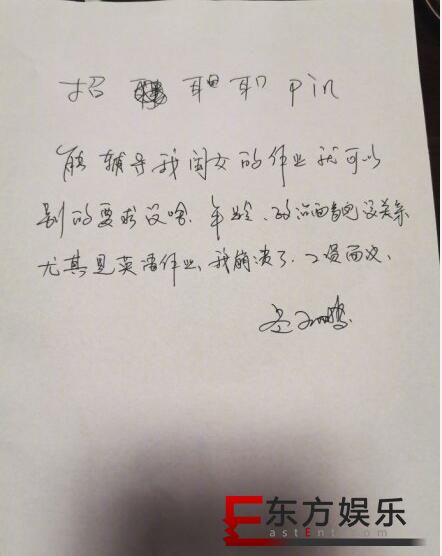 招 职职 pin
能辅导我闺女的作业就可以
别的要求没啥.年龄、政治面貌没关系
尤其是英语作业、我崩溃了.工资面议、
岳云鹏
东方娱乐
EastEnt.com